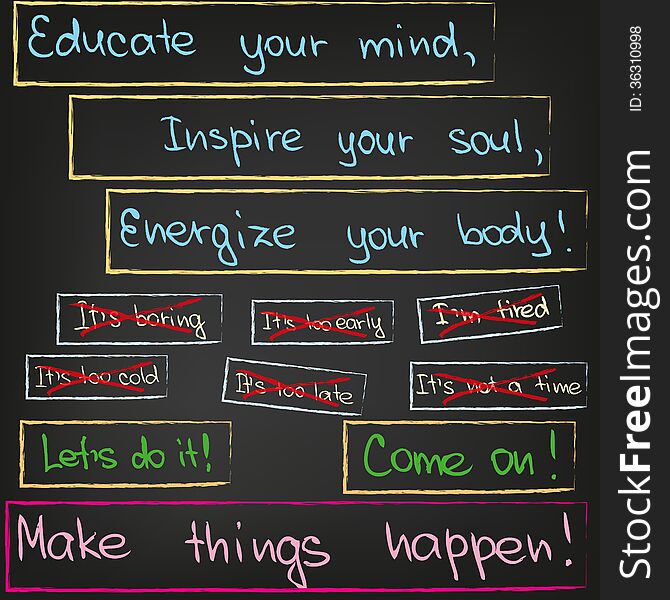 Educate your mind,
Inspire your soul,
Energize your body!
It's boring
It's too early
I'm tired
It's too cold
It's too late
It's not a time
Let's do it!
Come on!
Make things happen!
ID: 36310998
StockFreeImages.com